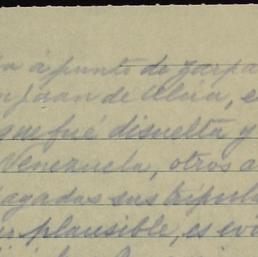 a á punto de zarpa
n Juan de Ulúa, e
que fué disuelta y
Venezuela, otros a
agadas sus tripul
plausible, es evi